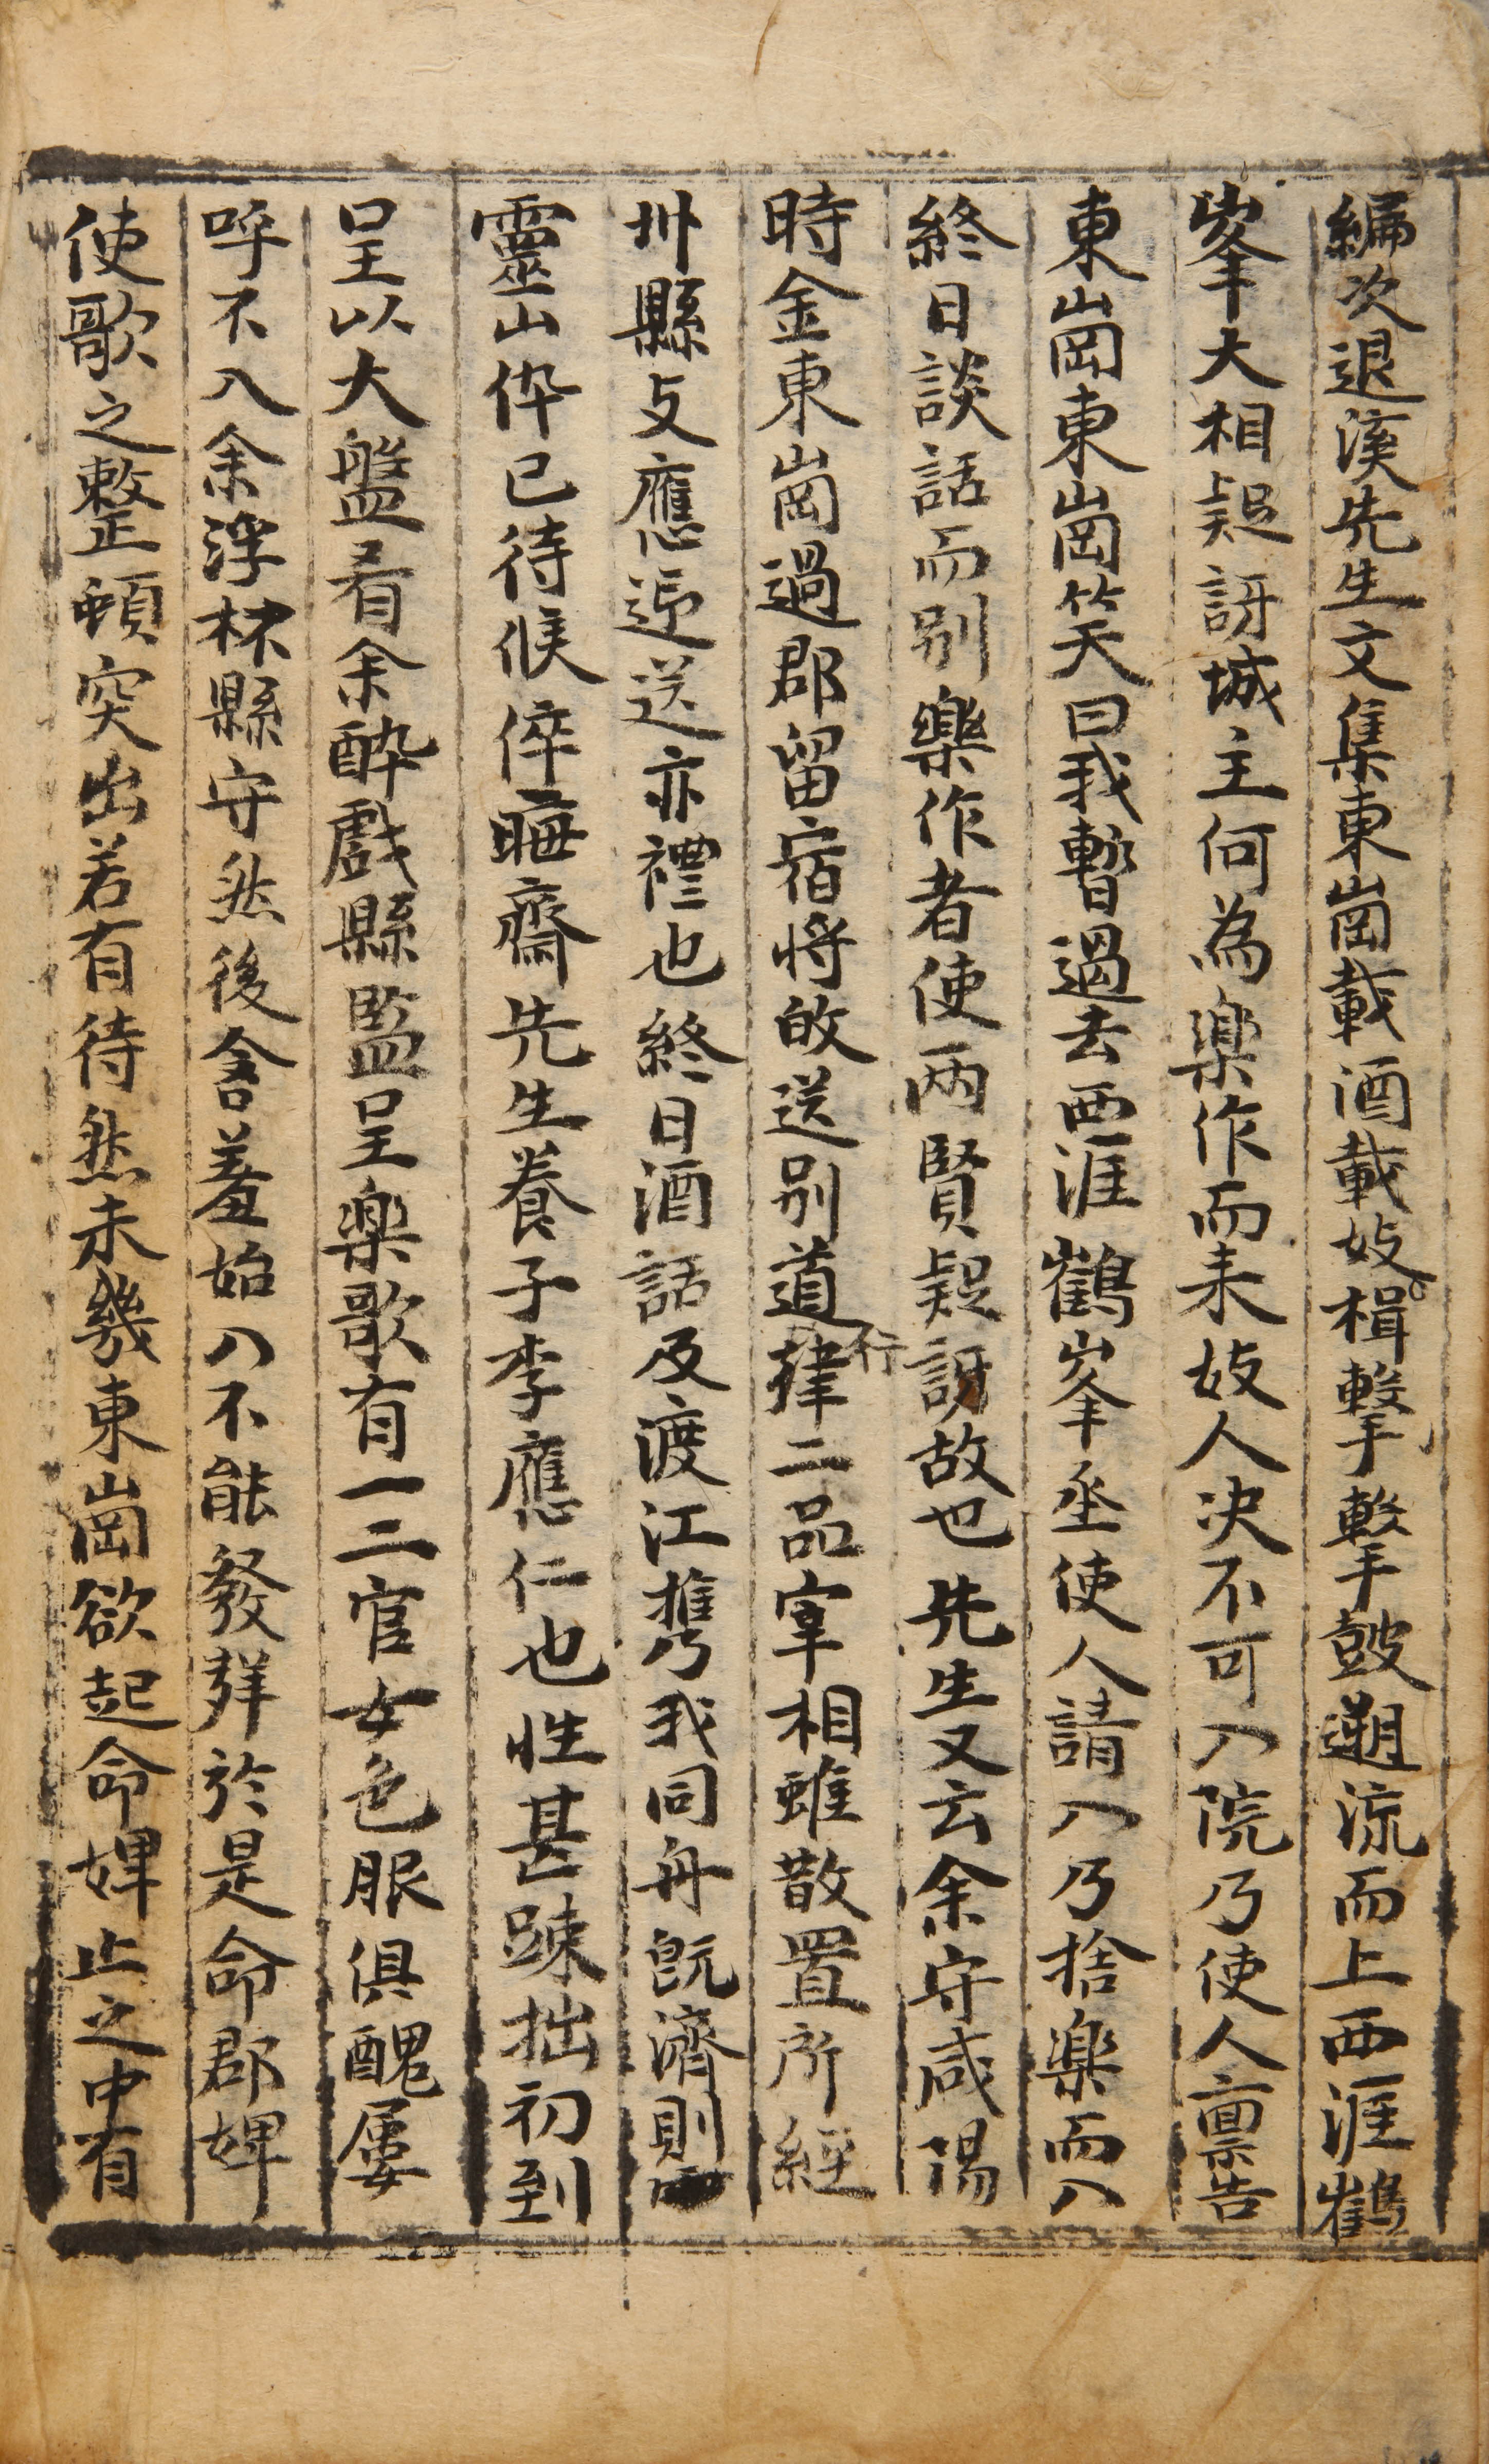 編次退溪先生文集東崗載酒載妓楫擊擊鼓遡流而上西涯鶴
峯大相疑訝城主何為樂作而来妓人决不可入院乃使人稟告
東崗東崗笑曰我暫過去西涯鶴峯丞使人請入乃捨樂而入
終日談話而別樂作者使兩賢疑訝故也先生又云余守咸陽
時金東崗過郡留宿将故送別道律行二品宰相雖散置所經
州縣支應迎送亦禮也終日酒話及渡江携我同舟既濟則
靈山倅已待候倅晦齋先生養子李應仁也性甚踈拙初到
呈以大盤看余醉戲縣監呈樂歌有一二官女色服俱醜屢
呼不入余浮杯縣守然後含羞始入不能發舞於是命郡婢
使歌之整頓突出若有待然未幾東崗欲起命婢止之中有